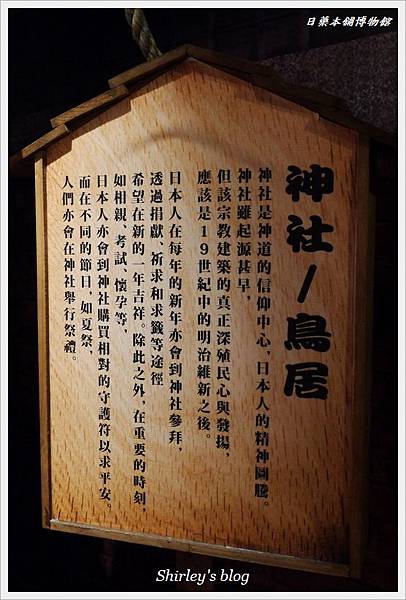 日藥本舖博物館
神社/鳥居
神社是神道的信仰中心，日本人的精神圖騰。
神社雖起源甚早，
但該宗教建築的真正深殖民心與發揚，
應該是19世紀中的明治維新之後。
日本人在每年的新年亦會到神社參拜，
透過捐獻、祈求和求籤等途徑
希望在新的一年吉祥。除此之外，在重要的時刻，
如相親、考試、懷孕等，
日本人亦會到神社購買相對的守護符以求平安。
而在不同的節日，如夏祭，
人們亦會在神社舉行祭禮。
Shirley's blog